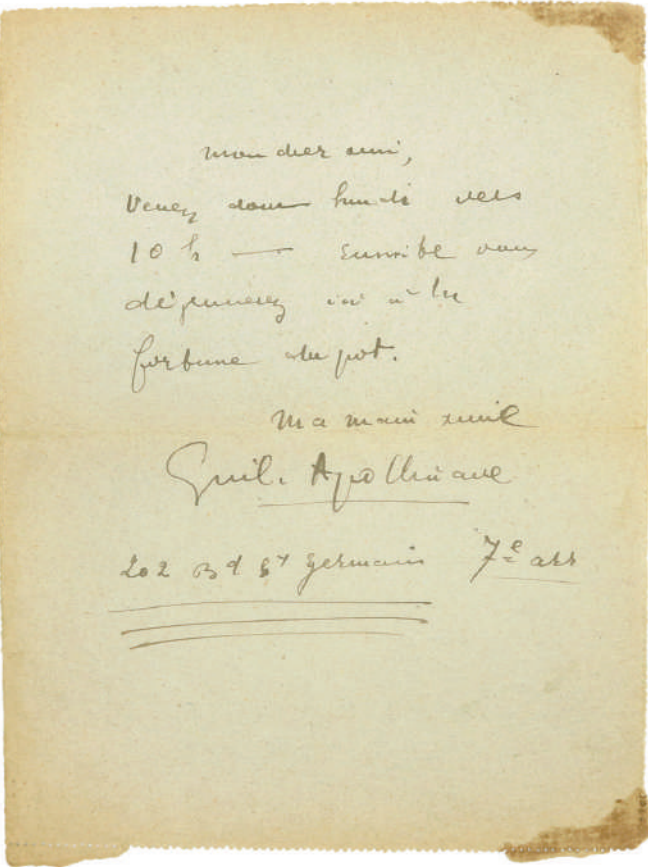 Mon cher ami,
Venez donc lundi vers
10 h — ensuite vous
déjeunerez ici à la
fortune du pot.
Ma main amie
Guil. Apollinaire
202 Bd St Germain 7e arr